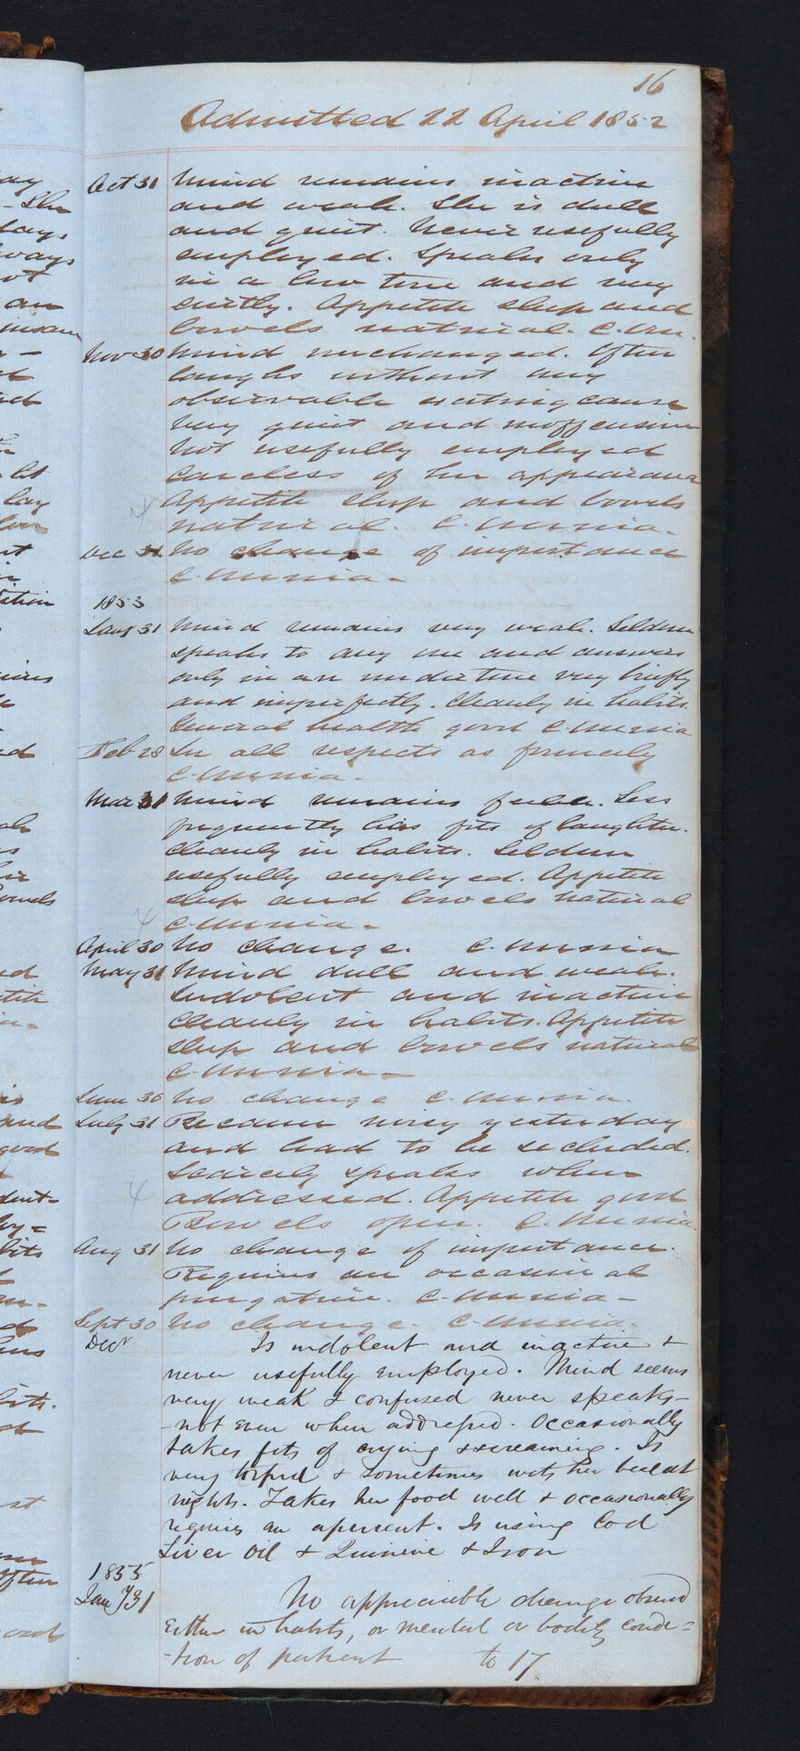 16
Admitted 22 April 1852
Oct 31 Mind remains inactive
and weak. She is dull
and quiet. Never usefully
employed. Speaks only
in a low tone and very
curtly. Appetite sleep and
bowels natural. C.
Nov 30 Mind unchanged. Often
laughs without any
observable exciting cause
Very quiet and inoffensive
Not usefully employed
Careless of her appearance
Appetite sleep and bowels
natural. C.
Dec 31 No change of importance
C.
1853
Jany 31 Mind remains very weak. Seldom
speaks to any one and answers
only in an under tone very briefly
and imperfectly. Cleanly in habits
General health good C.
Feb 28 In all respects as formerly
C.
Mar 31 Mind remains Less
frequently has fits of laughter.
Cleanly in habits. Seldom
usefully employed. Appetite
sleep and bowels natural
C.
April 30 No change. C.
May 31 Mind dull and weak.
Indolent and inactive
Cleanly in habits. Appetite
sleep and bowels natural
C.
June 30 No change C.
July 31 Became noisy yesterday
and had to be secluded.
Scarcely speaks when
addressed. Appetite good
Bowels open. C.
Aug 31 No change of importance.
Requires an occasional
purgative. C.
Sept 30 No change. C.
Decr Is indolent and inactive +
never usefully employed. Mind seems
very weak & confused never speaks-
-not even when addressed. Occasionally
takes fits of crying & screaming. Is
very torpid & sometimes wets her bed at
nights. Takes her food well & occasionally
requires an aperient. Is using Cod
Liver Oil & Quinine & Iron
1855
Jany 31 No appreciable change observed
Either in habits, or mental or bodily condi=
-tion of patient to 17